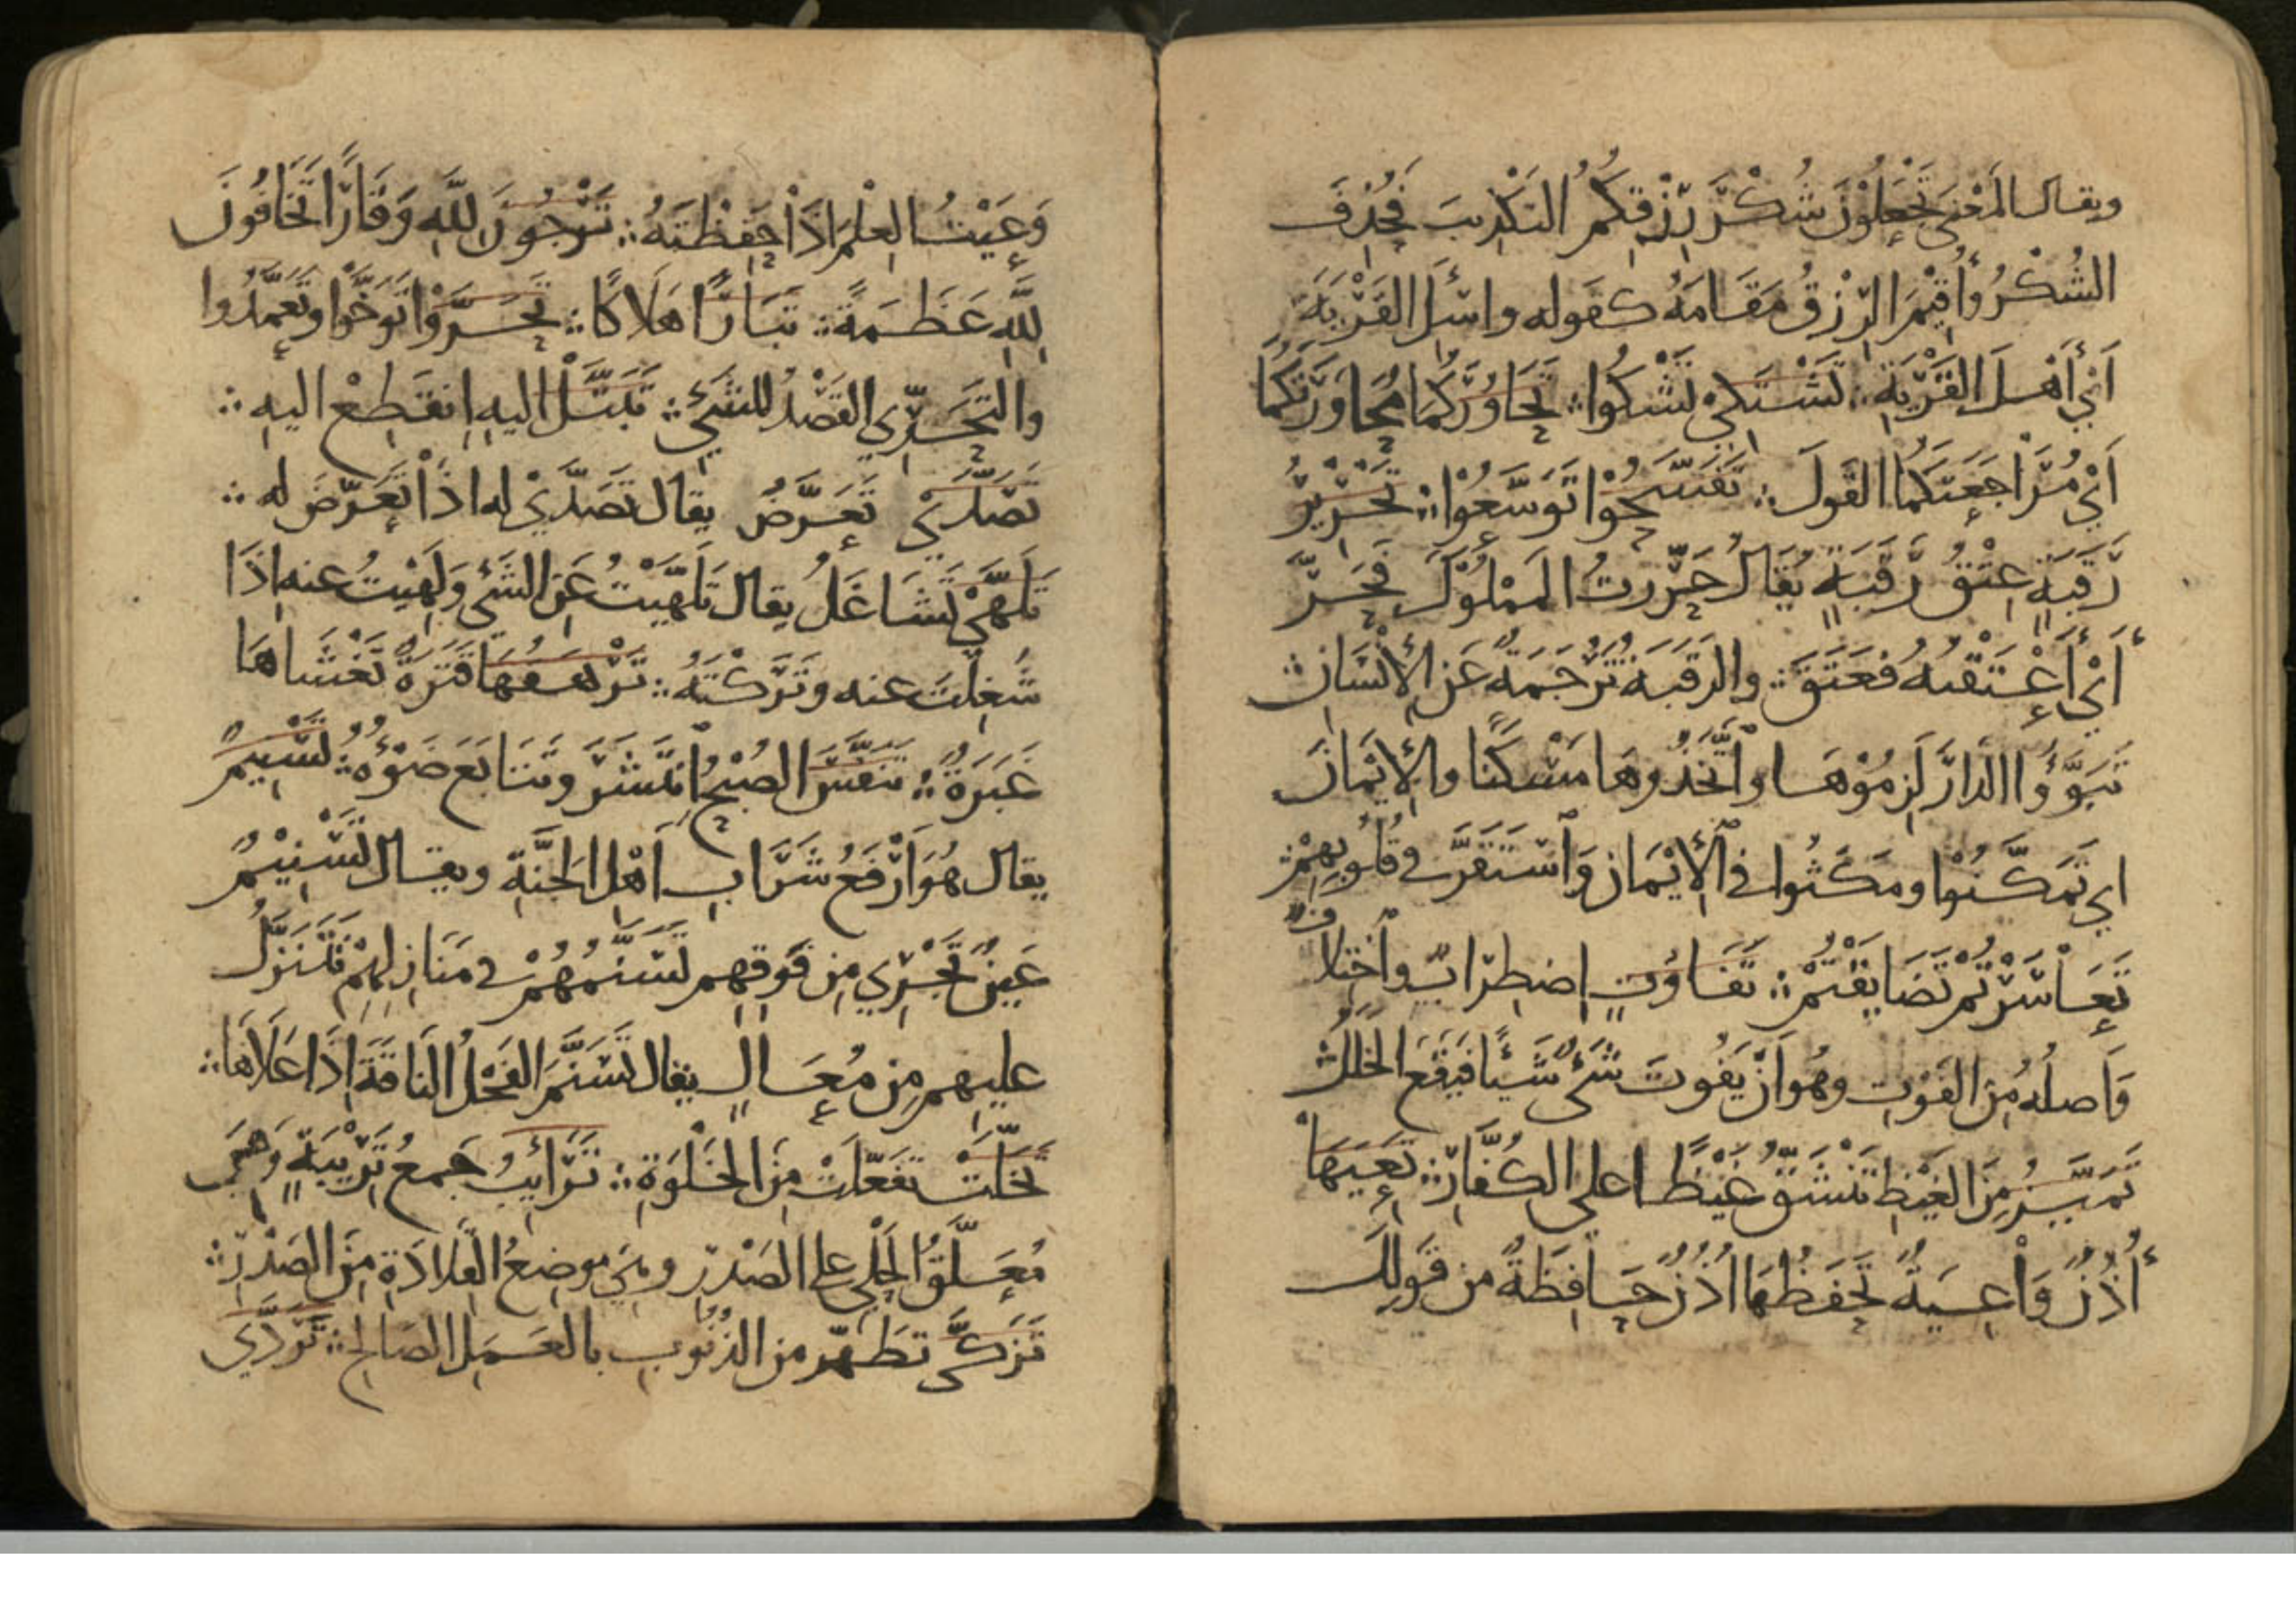 ويقال المَعْنَى تَجْعَلُوْنَ شُكْرَ رِزْقِكُمُ التَكْذِيبَ فَحُذِفَ
الشُكْرُ وأُقِيْمَ الرِزْقُ مَقَامَهُ كقوله واسْئَلِ القَرْيَةَ
أَيْ أَهْلَ القَرْيَةِ ⁘ تَشْتَكِيْ تَشْكُوا ⁘ تَحَاوُرَكُمَا مُحَاوَرَتَكُمَا
أَيْ مُرَاجَعَتَكُمَا القَولَ ⁘ تَفَسَّحُوْا تَوَسَّعُوْا ⁘ تَحْرِيْرُ
رَقَبَةٍ عِتْقُ رَقَبَةٍ يُقَالُ حَرَّرتُ المَمْلُوْكَ فَحَرَّ
أَيْ أَعْتَقْتُهُ فعَتَقَ ⁘ والرَقَبَةُ تَرْجَمَةٌ عَنِ الإنْسَانِ ⁘
تَبَوَّؤُا الدَارَ لَزِمُوْهَا واتَّخَذُوهَا مَسْكَنًا والإيْمَانَ
اي تَمَكَّنُوْا ومَكَثُوا في الإيْمَانِ وَاسْتَقَرَّ في قُلُوبِهِمْ ⁘
تَعَاسَرْتُمْ تَضَايَقْتُمْ ⁘ تَفَاوُتٍ اِضطِرَابٍ واخْتِلَافٍ
وَاصلُهُ مِنَ الفَوْتِ وهُوَ أَنْ يَفُوتَ شَيْءٌ شَيْئًا فَيَقَعَ الخَلَلُ ⁘
تَمَيَّزُ مِنَ الغَيْظِ تَنْشَقُّ غَيْظًا على الكُفَّارِ ⁘ تَعِيَهَا
أُذُنٌ وَاعِيَةٌ تَحْفَظُهَا أُذُنٌ حَافِظَةٌ من قَولِكَ
وَعَيْتُ العِلْمَ إذَا حَفِظْتَهُ ⁘ تَرْجُونَ لِلَّهِ وَقَارًا تَخَافُونَ
لِلَّهِ عَظَمَةً ⁘ تَبَارًا هَلَاكًا ⁘ تَحَرَّوْا تَوَخَّوْا وتَعَمَّدُوا
والتَحَرِّي القَصْدُ للشَيْءِ ⁘ تَبَتَّلْ اليهِ اِنقَطِعْ اليهِ ⁘
تَصَدَّىْ تَعَرَّضُ يقال تَصَدَّيْ له اذَا تَعَرَّضَ له ⁘
تَلَهَّىْ تَشَاغَلُ يقال تَلَهَّيْتُ عَنِ الشَيْءِ وَلَهِيْتُ عنه اِذَا
شُغِلْتَ عنه وتَرَكْتَهُ ⁘ تَرْهَقُهَا قَتَرَةٌ تَغْشَاهَا
غَبَرَةٌ ⁘ تَنَفَّسَ الصُبْحُ اِنْتَشَرَ وتَتَابَعَ ضَوْءُهُ ⁘ تَسْنِيمٌ
يقال هُوَ أَرْفَعُ شَرَابِ أَهْلِ الجَنَّةِ ويقال تَسْنِيْمٌ
عَينٌ تَجْرِي مِن فَوقِهِم تَسَنَّمُهُمْ في مَنَازِلِهِمْ تَتَنَزَّلُ
عليهِم مِن مُعَالٍ يقال تَسَنَّمَ الفَحْلُ النَاقَةَ اِذَا عَلَاهَا ⁘
تَخَلَّتْ تَفَعَّلَتْ مِنَ الخَلْوَةِ ⁘ تَرَائِبُ جَمعُ تَرِيْبَةٍ وَهِيَ
مُعَلَّقُ الحَلْيِ على الصَدْرِ وهي مَوضِعُ القِلَادَةِ مِنَ الصَدْرِ ⁘
تَزَكَّى تَطَهَّرَ من الذُنُوبِ بالعَمَلِ الصَالِحِ ⁘ تَرَدَّي